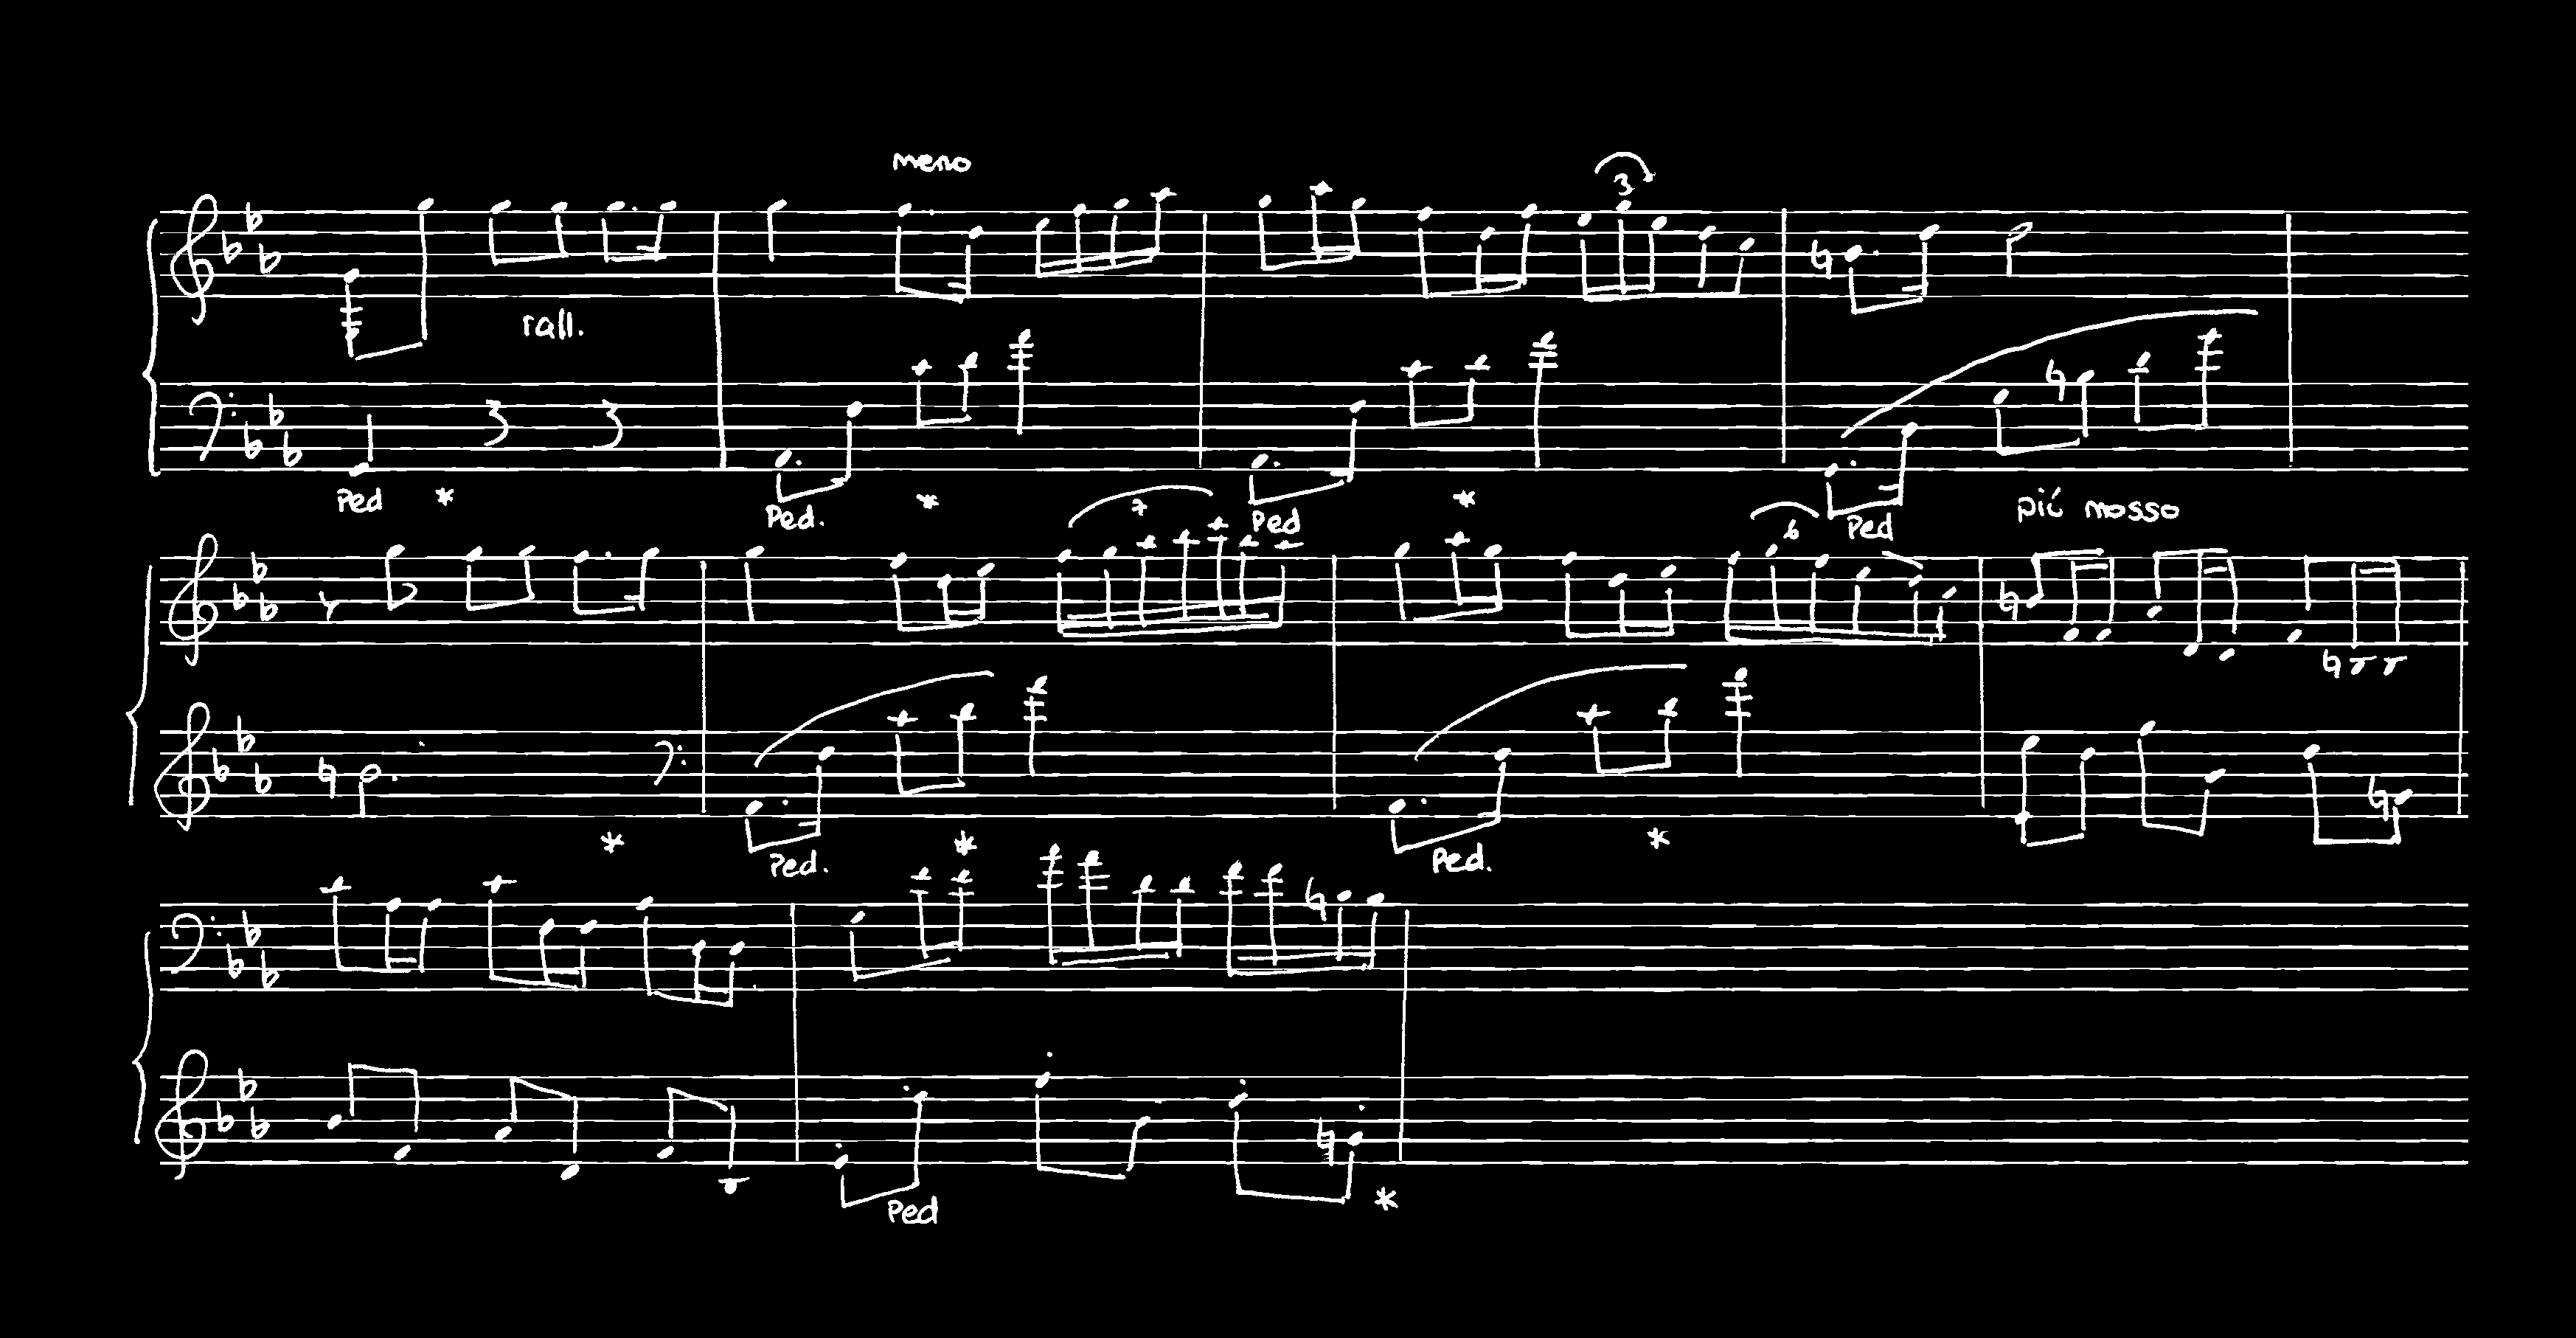 meno
3
rall.
Ped * Ped. * Ped * Ped
7
6
più mosso
* Ped. * Ped. *
Ped *